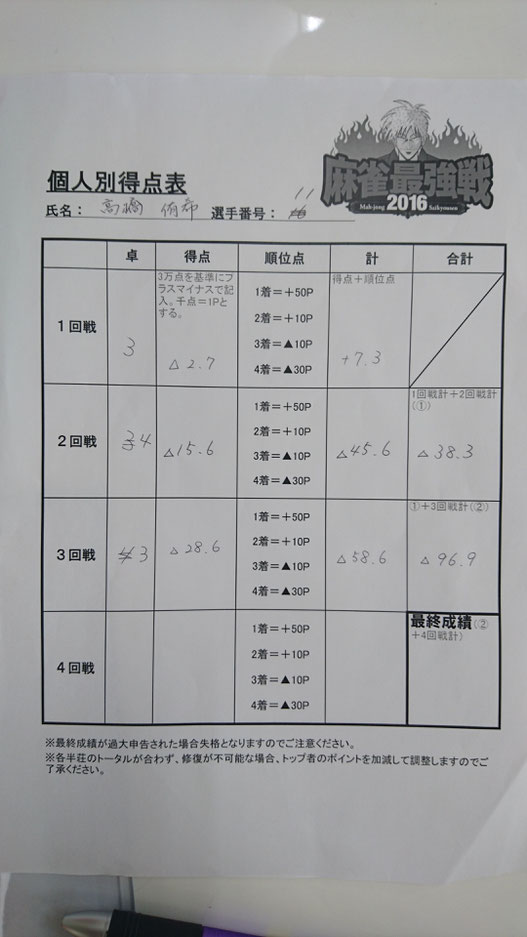 麻雀最強戦
Mah-jong 2016 Saikyousen
個人別得点表
氏名： 高橋 侑希 選手番号： 11
卓 得点 順位点 計 合計
1回戦 3 3万点を基準にプラスマイナスで記入。千点＝1Pとする。 △2.7 得点＋順位点 +7.3
1着＝＋50P
2着＝＋10P
3着＝▲10P
4着＝▲30P
2回戦 4 △15.6 △45.6 1回戦計＋2回戦計(①) △38.3
1着＝＋50P
2着＝＋10P
3着＝▲10P
4着＝▲30P
3回戦 3 △28.6 △58.6 ①＋3回戦計(②) △96.9
1着＝＋50P
2着＝＋10P
3着＝▲10P
4着＝▲30P
4回戦 最終成績(②＋4回戦計)
1着＝＋50P
2着＝＋10P
3着＝▲10P
4着＝▲30P
※最終成績が過大申告された場合失格となりますのでご注意ください。
※各半荘のトータルが合わず、修復が不可能な場合、トップ者のポイントを加減して調整しますのでご
了承ください。